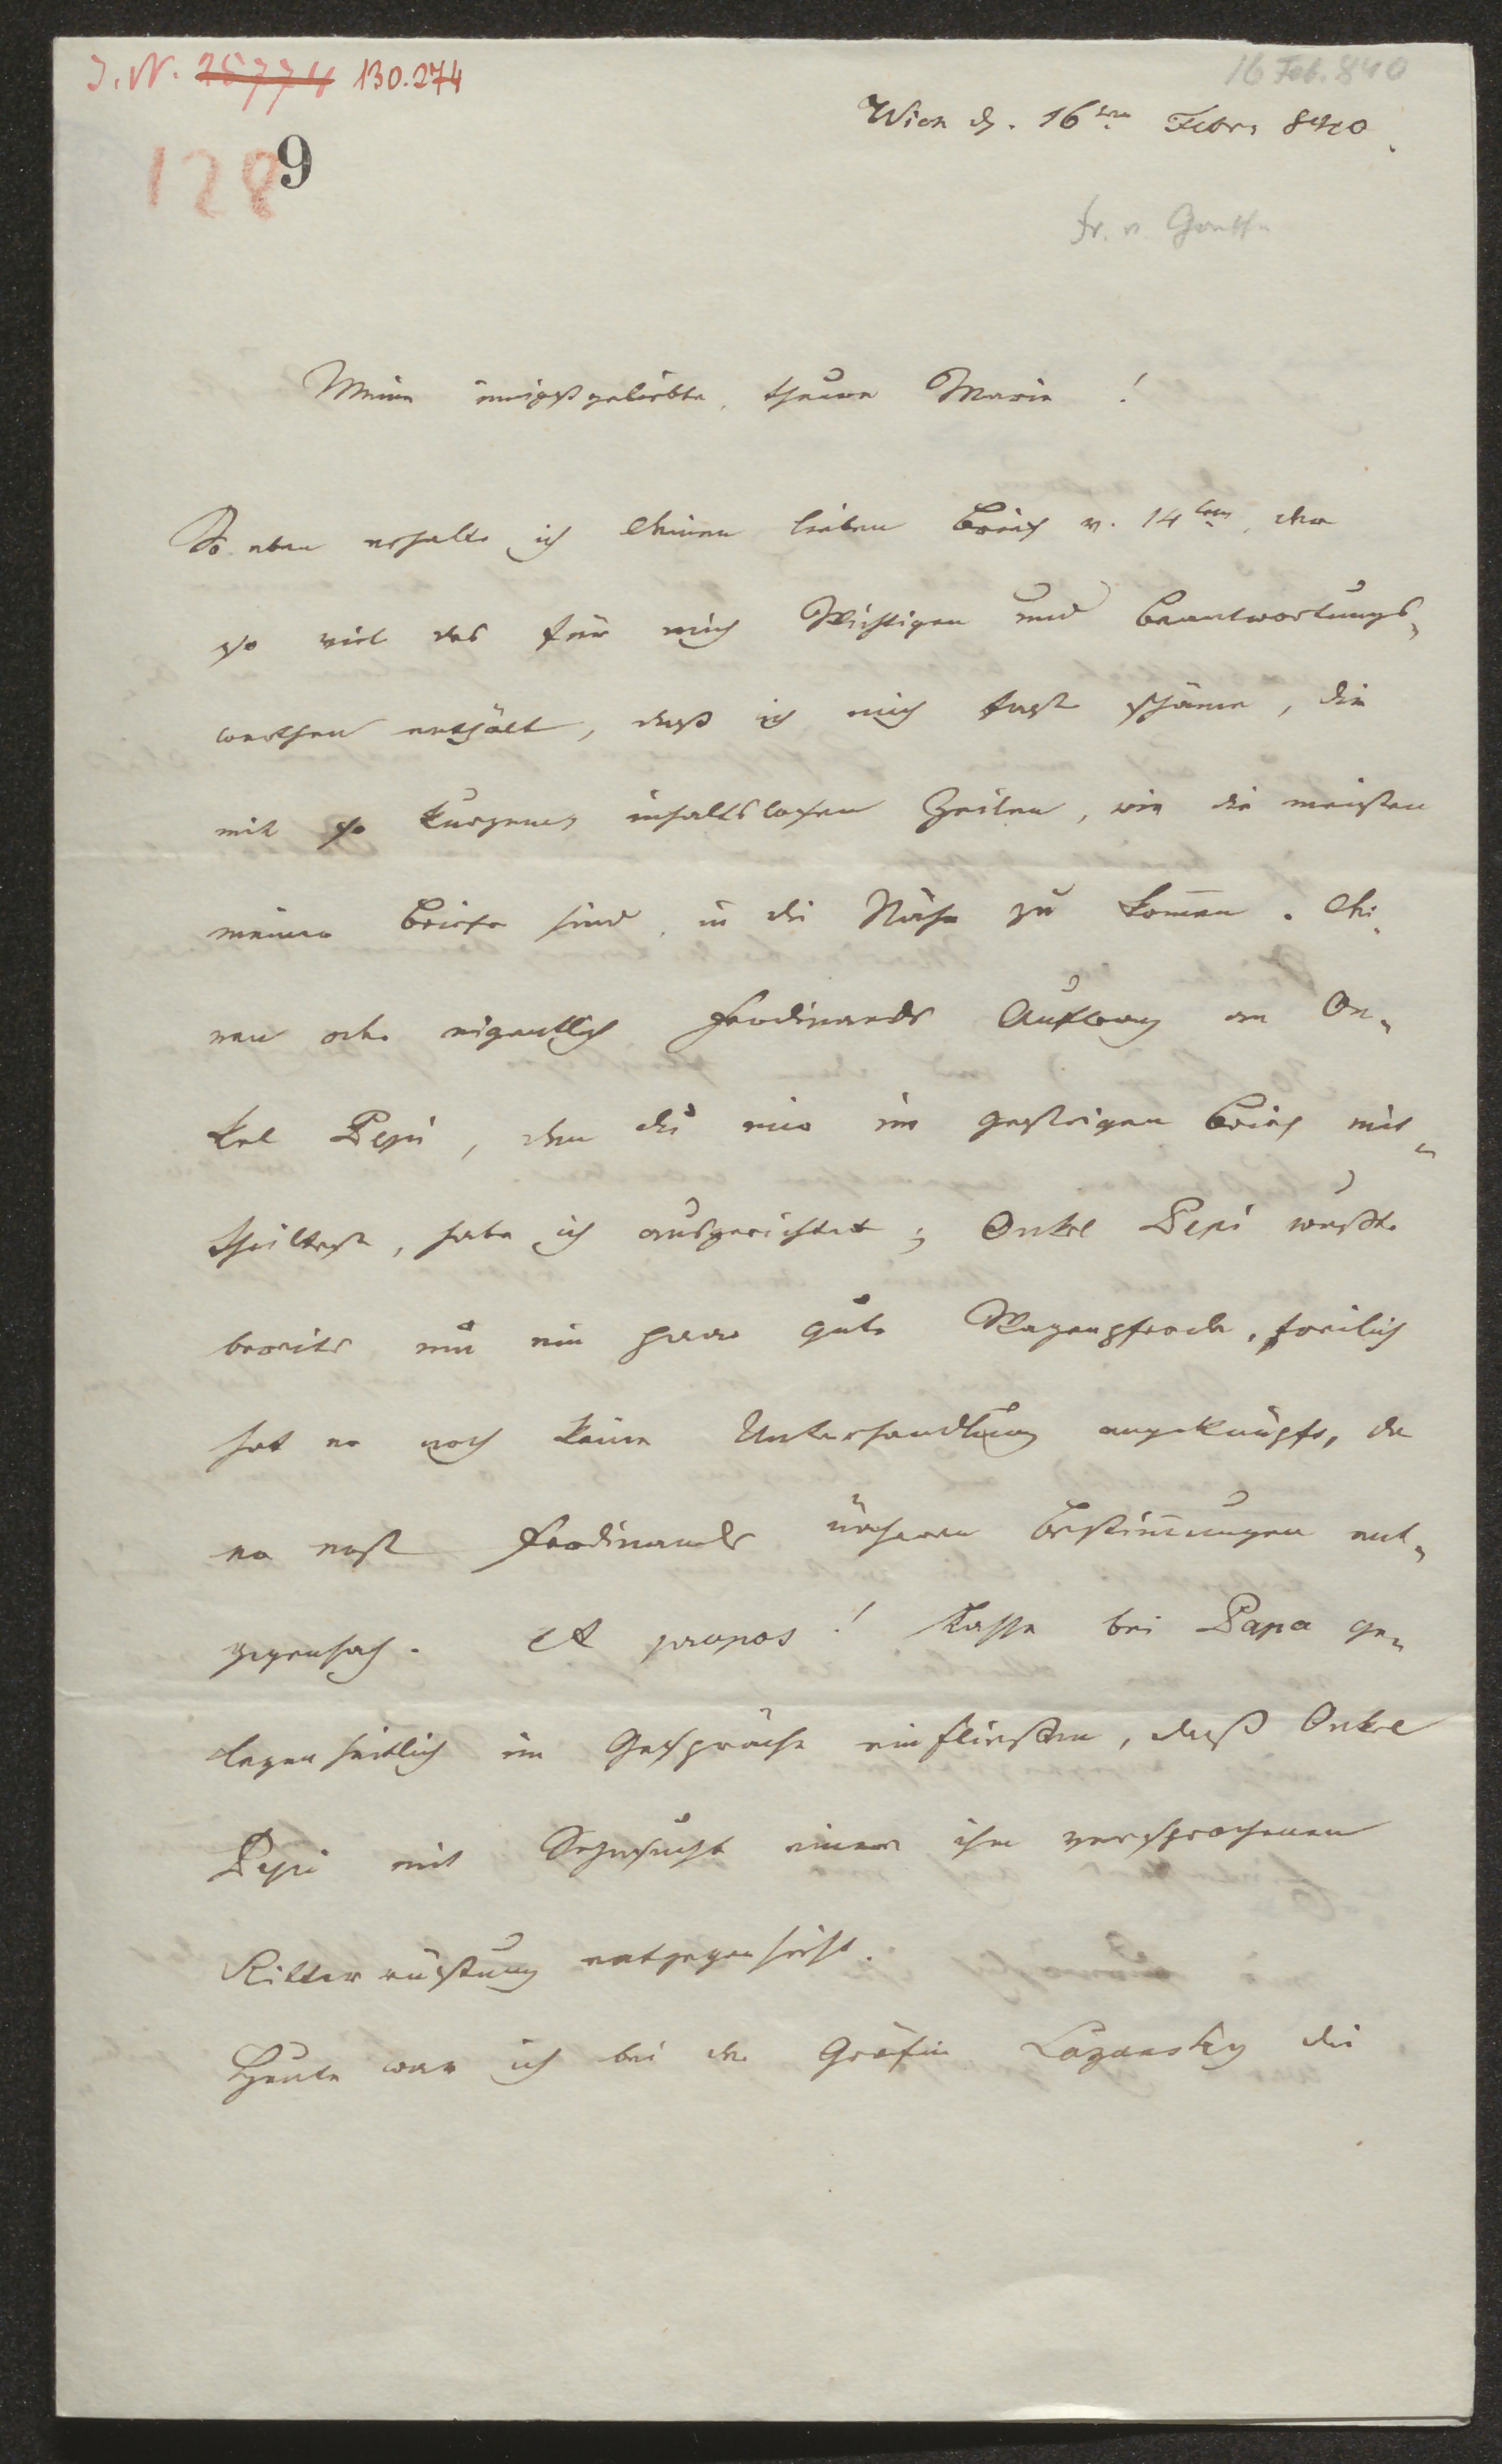 I. N. 25774 130.274
16 Feb. 840
Wien d. 16ten Febr. 840.
128
9
Fr. v.
Meine innigstgeliebte, theure Marie!
So eben erhalte ich Deinen lieben Brief v. 14ten, der
so viel des für mich Wichtigen und Beantwortungs-
werthen enthält, daß ich mich fast schäme, Dir
mit so kurzen, inhaltslosen Zeilen, wie die meisten
meiner Briefe sind, in die Nähe zu kom̄en. Dei-
nen oder eigentlich Ferdinands Auftrag an On-
kel Pepi, den Du mir im gestrigen Brief mit-
theiltest, habe ich ausgerichtet; Onkel Pepi wußte
bereits um ein paar gute Wagenpferde, freilich
hat er noch keine Unterhandlung angeknüpft, da
er erst Ferdinands näheren Bestim̄ungen ent-
gegensah. A propos! Lasse bei Papa ge-
legenheitlich im Gespräche einfließen, daß Onkel
Pepi mit Sehnsucht einer ihm versprochenen
Ritterrüstung entgegensieht.
Heute war ich bei der Gräfin Lazansky die